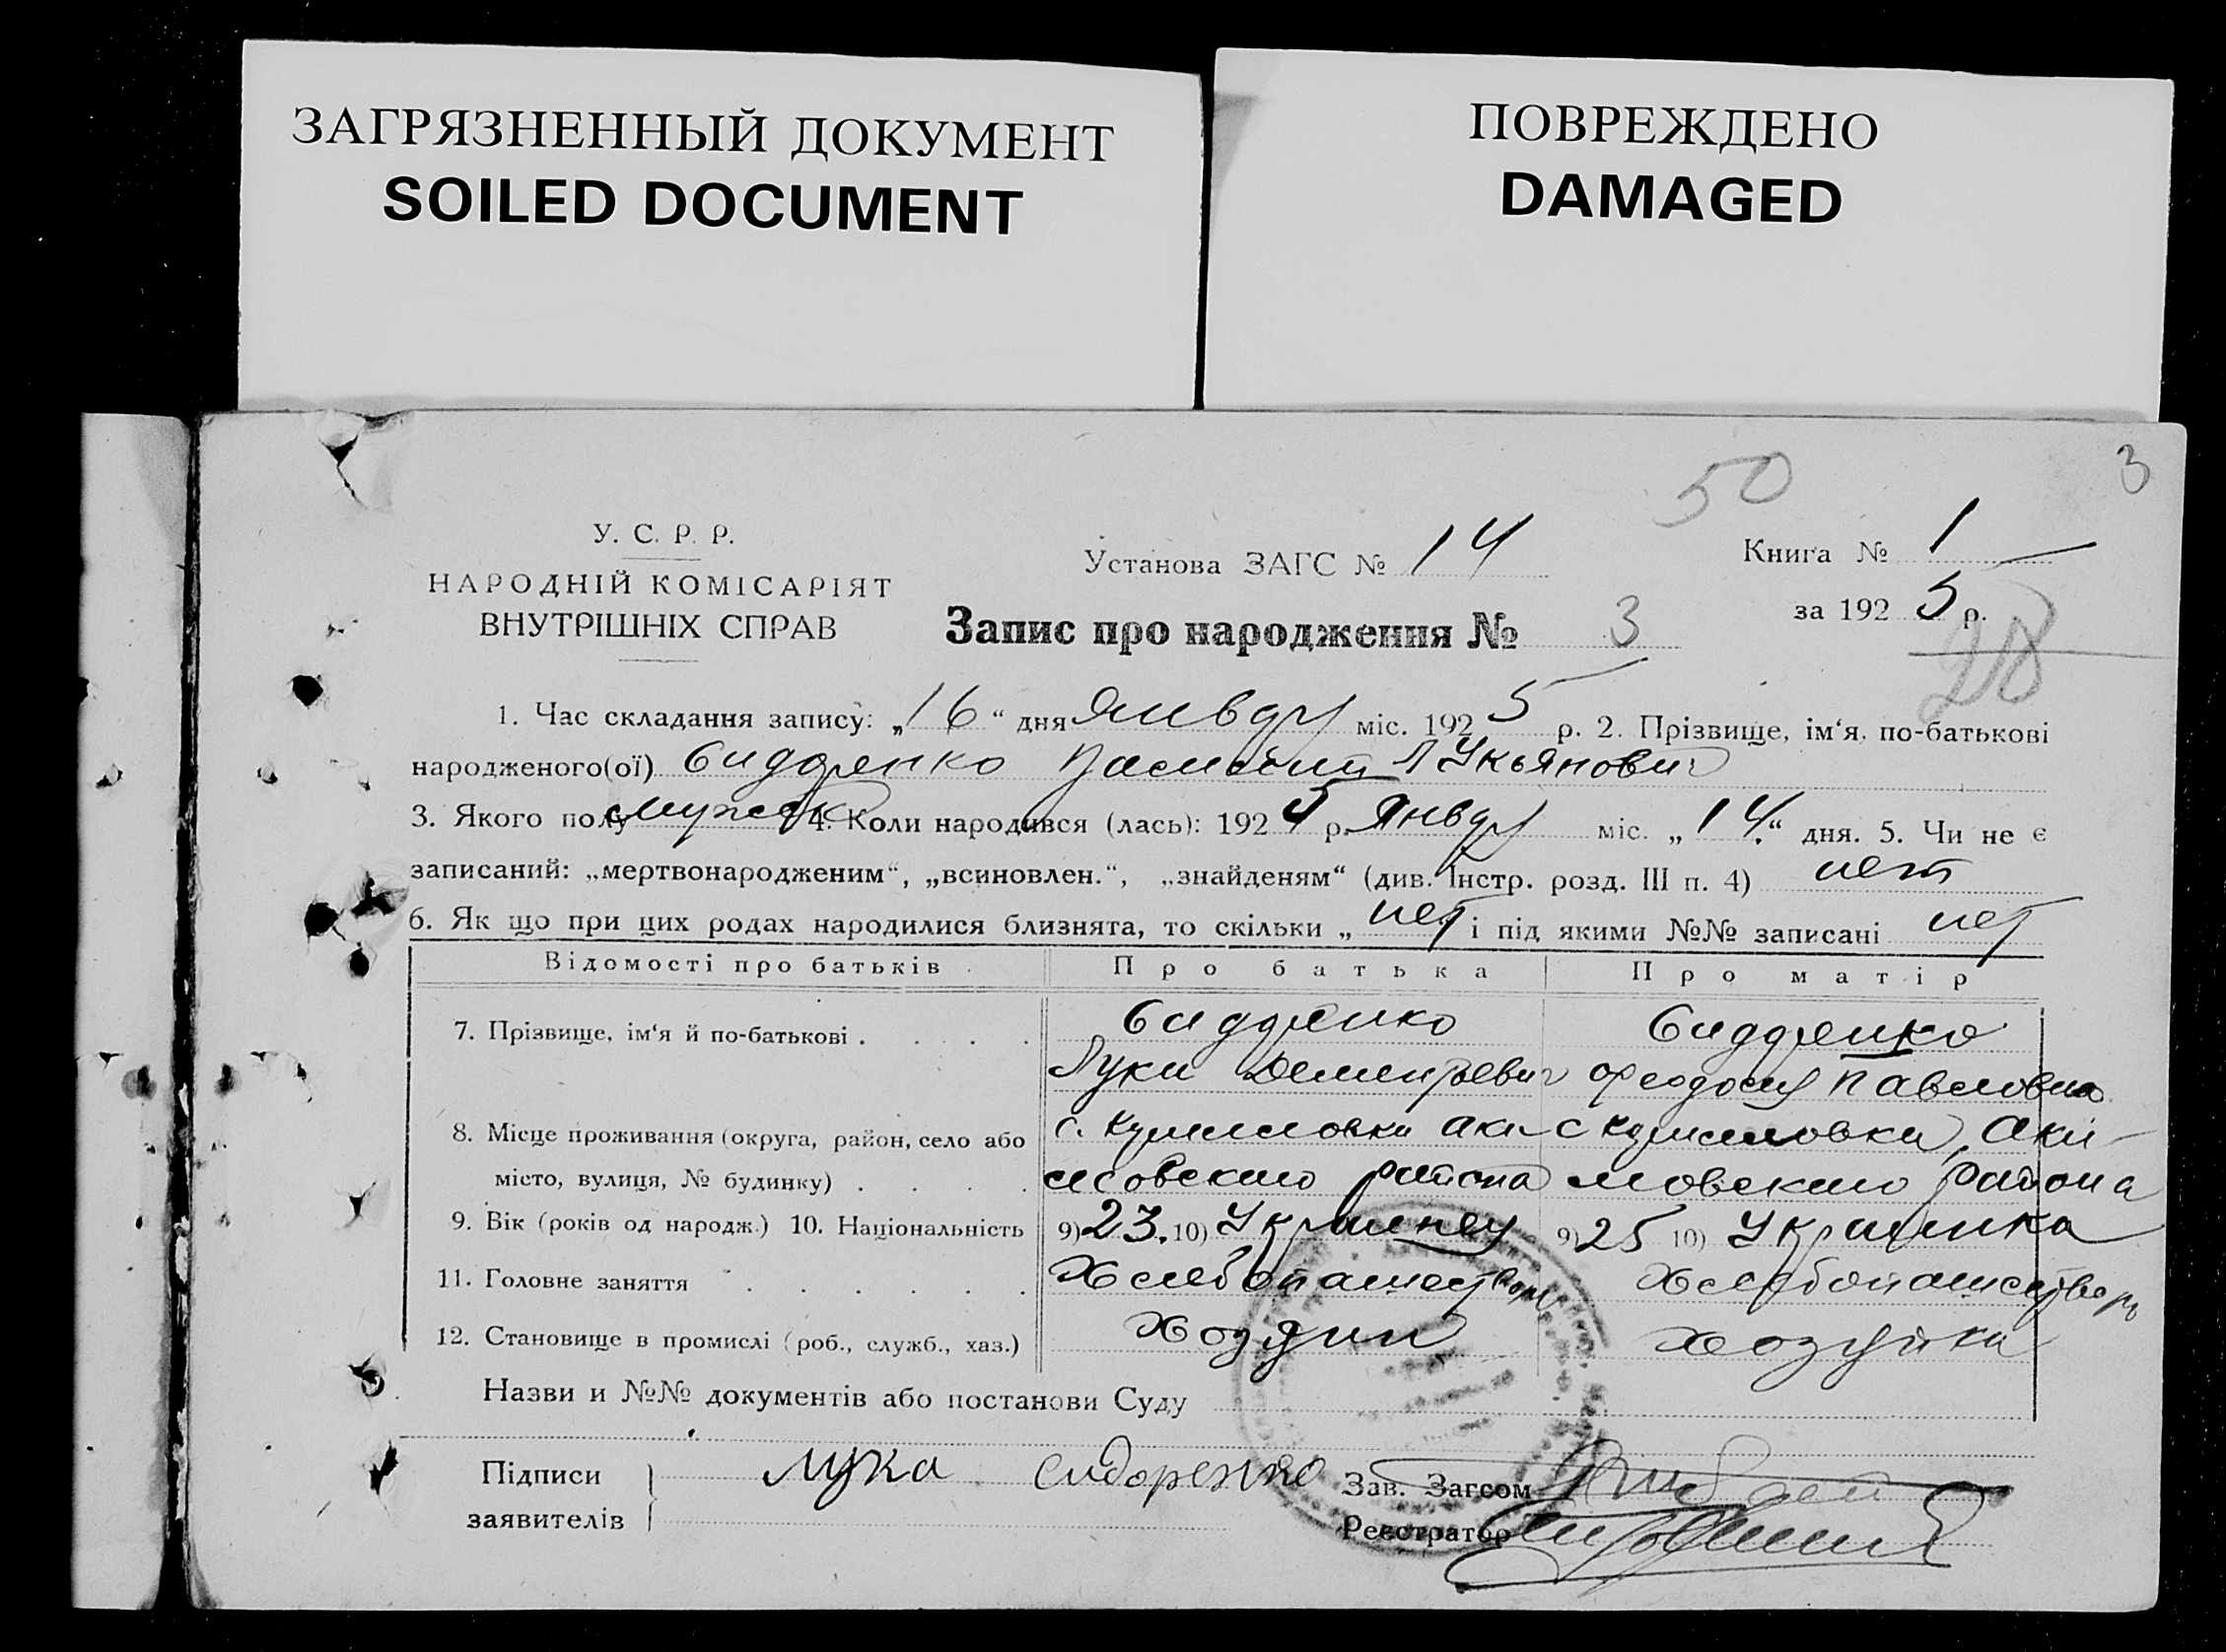 ЗАГРЯЗНЕННЫЙ ДОКУМЕНТ
SOILED DOCUMENT
ПОВРЕЖДЕНО
DAMAGED
50
3
У. С. Р. Р.
НАРОДНІЙ КОМІСАРІЯТ
ВНУТРІШНІХ СПРАВ
Установа ЗАГС № 14
Книга № 1
за 192 5 р.
28
Запис про народження № 3
1. Час складання запису: „16“ дня Январ міс. 192 5 р. 2. Прізвище, ім‘я, по-батькові
народженого(ої) Сидоренко Василий Лукьянович
3. Якого полу мужск 4. Коли народився (лась): 192 5 р. Январ міс. „14“ дня. 5. Чи не є
записаний: „мертвонародженим“, „всиновлен.“, „знайденям“ (див. Інстр. розд. III п. 4) нет
6. Як що при цих родах народилися близнята, то скільки „ нет і під якими №№ записані нет
Відомості про батьків
Про батька
Про матір
7. Прізвище, ім‘я й по-батькові . . . . Сидоренко Сидоренко
Луки Дементьевич Феодосия Павловна
8. Місце проживання (округа, район, село або с. Аки- с Аки-
місто, вулиця, № будинку) . . . . мовского района мовского района
9. Вік (років од народж.) 10. Національність 9) 23. 10) Украинец 9) 25 10) Украинка
11. Головне заняття . . . . . . Хлебопашество Хлебопашество
12. Становище в промислі (роб., служб., хаз.) Хозяин хозяйка
Назви и №№ документів або постанови Суду
Підписи
заявителів
лука сидоренко
Зав. Загсом
Реєстратор